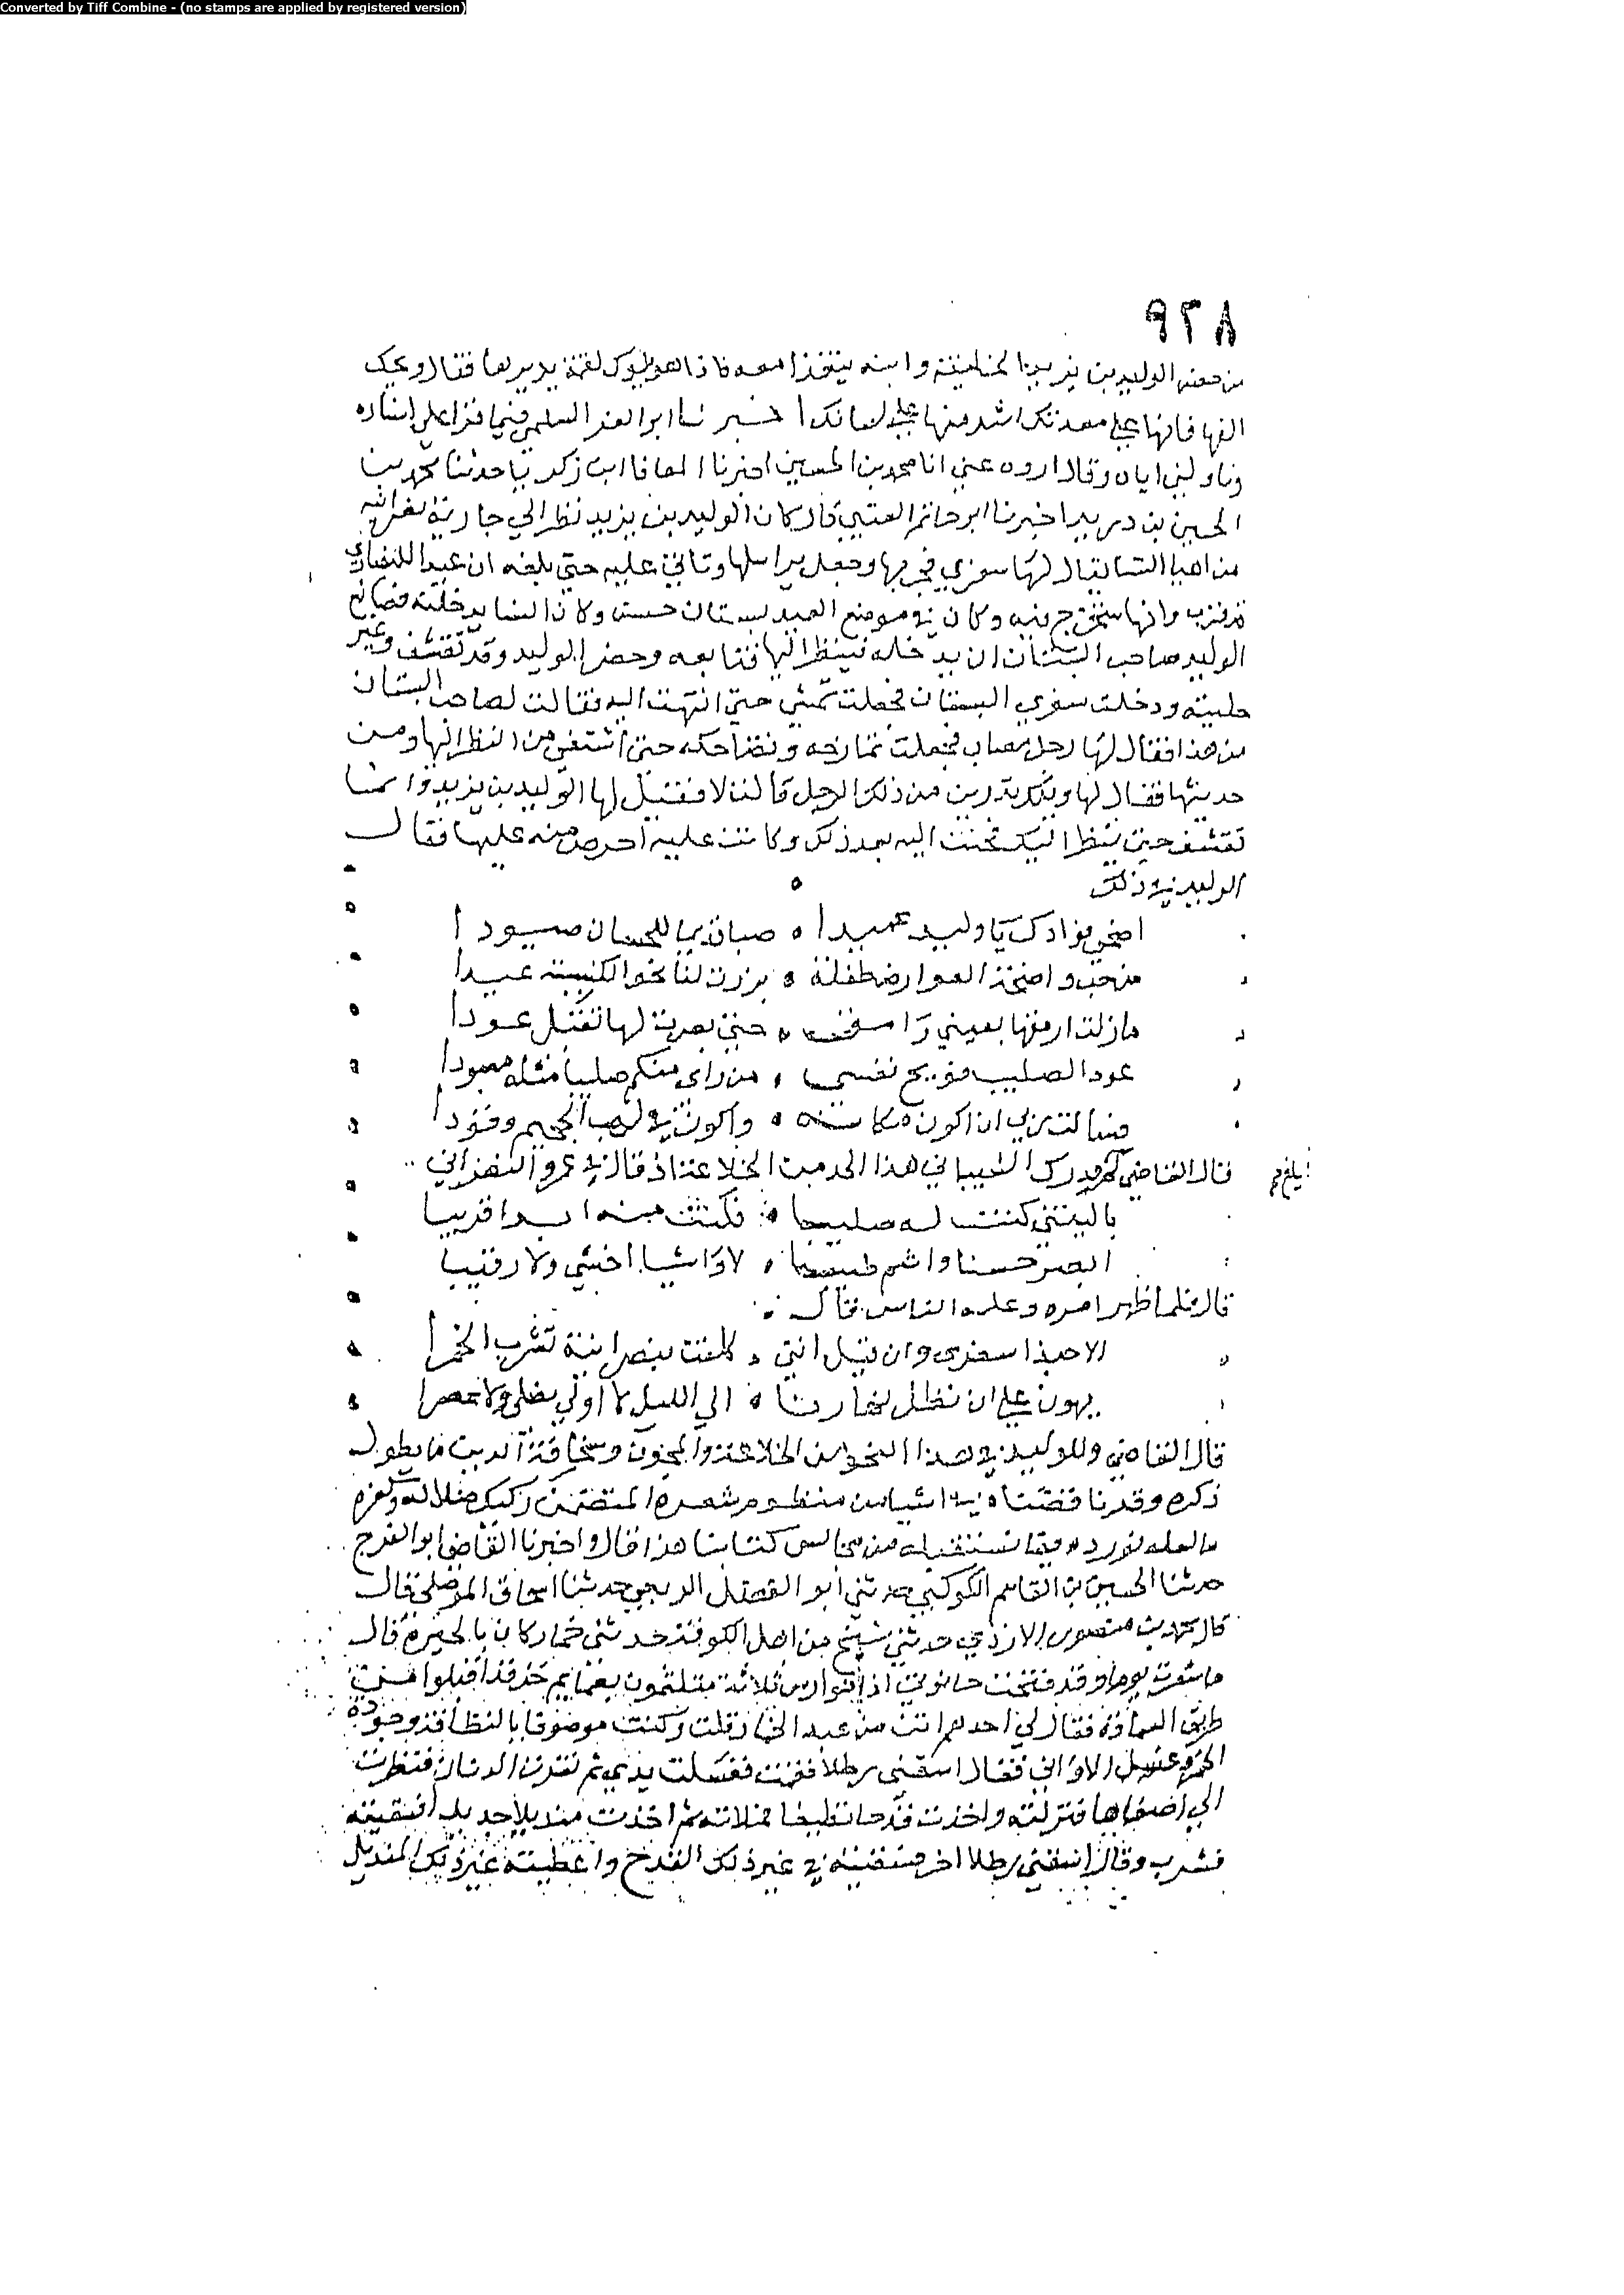 Converted by Tiff Combine - (no stamps are applied by registered version)
٩٢٨
من حضر الوليد بن يزيد الخليفة وابنه يتغذا معه فاذا هو يلوك لقمة يديرها فقال ويحك
القها فانها على معدتك اشد منها على لسانك اخبرنا ابو العز السلمي فيما قرا علي اسناده
وناولني اياه وقال اروه عني انا محمد بن الحسين اخبرنا المعافا ابن زكريا حدثنا محمد بن
الحسين بن دريد اخبرنا ابو حاتم العتبي قال كان الوليد بن يزيد نظر الي جارية نصرانية
من اهيا النسا يقال لها سفري فجن بها وجعل يراسلها وتابي عليه حتى بلغه ان عيدا للنصاري
قد قرب وانها ستخرج فيه وكان في موضع العيد بستان حسن وكان النسا يدخلنه فصانع
الوليد صاحب البستان ان يدخله فينظر اليها فتابعه وحضر الوليد وقد تقشف وغير
حليته ودخلت سفري البستان فجعلت تمشي حتى انتهت اليه فقالت لصاحب البستان
من هذا فقال لها رجل مصاب فجعلت تمازحه وتضاحكه حتى اشتفى من النظر اليها ومن
حديثها فقيل لها ويلك تدرين من ذلك الرجل قالت لا فقيل لها الوليد بن يزيد وانما
تقشف حتى ينظر اليك فجنت اليه بعد ذلك وكانت عليه احرص منه عليها فقال
الوليد في ذلك
اضحى فوادك يا وليد عميدا ٥ صبا قديما للحسان صيودا
من حب واضحة العوارض طفلة ٥ برزت لنا نحو الكنيسة عيدا
مازلت ارمقها بعيني وامق ٥ حتى بصرت لها تقبل عودا
عود الصليب فويح نفسي ، من راى منكم صليبا مثله معبودا
فسالت ربي ان اكون مكانه ٥ واكون في لهب الجحيم وقودا
قال القاضي لم يدرك الشيباني هذا الحد من الخلاعة اذ قال في عمرو النصراني
بلغ
ياليتني كنت له صليبا ٥ فكنت منه ابدا قريبا
ابصر حسنا واشم طيبا ، لا واشيا اخشى ولا رقيبا
قال فلما ظهر امره وعلمه الناس قال
الا حبذا سفرى وان قيل انني ، كلفت بنصرانية تشرب الخمرا
يهون علي ان نظل نهارنا ٥ الي الليل لا اولي نصلي ولا عصرا
قال القاضي وللوليد في هذا النحو من الخلاعة والمجون وسخافة الدين ما يطول
ذكره وقدرنا قضناه في اشيا من منظوم شعره المتضمن ركيك ضلاله وكفره
ما لعله نورده فيما نستقبله من مجالس كتابنا هذا قال واخبرنا القاضي ابو الفرج
حدثنا الحسين بن القاسم الكوكبي حدثني ابو الفضل الربعي حدثنا اسحاق الموصلي قال
قال محمد بن منصور الازدي حدثني شيخ من اهل الكوفة حدثني خمار كان بالحيرة قال
ما شعرت يوما وقد فتحت حانوتي اذا فوارس ثلاثة متلثمون بعمايم خز قد اقبلوا من
طريق السماوة فقال لي احدهم انت من عبد الخمار قلت وكنت موصوفا بالنظافة وجودة
الخمر وغسل الاواني فقال اسقني رطلا فقمت فغسلت يدي ثم نقرت الدنان فنظرت
الي اصفاها فنزلته واخذت قدحا نظيفا فملاته ثم اخذت منديلا جديدا فسقيته
فشرب وقال اسقني رطلا اخر فسقيته في غير ذلك القدح واعطيته غير ذلك المنديل